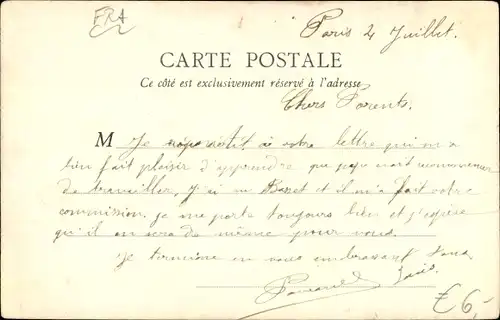 FRA
Paris 2 Juillet.
CARTE POSTALE
Ce côté est exclusivement réservé à l'adresse
Chers Parents.
M Je à votre lettre qui m'a
bien fait plaisir d'apprendre que papa
de travailler. J'ai vu et il m'a fait votre
commission. je me porte toujours bien et j'espère
qu'il en sera de même pour vous.
Je termine en vous embrassant tous.
€6,-